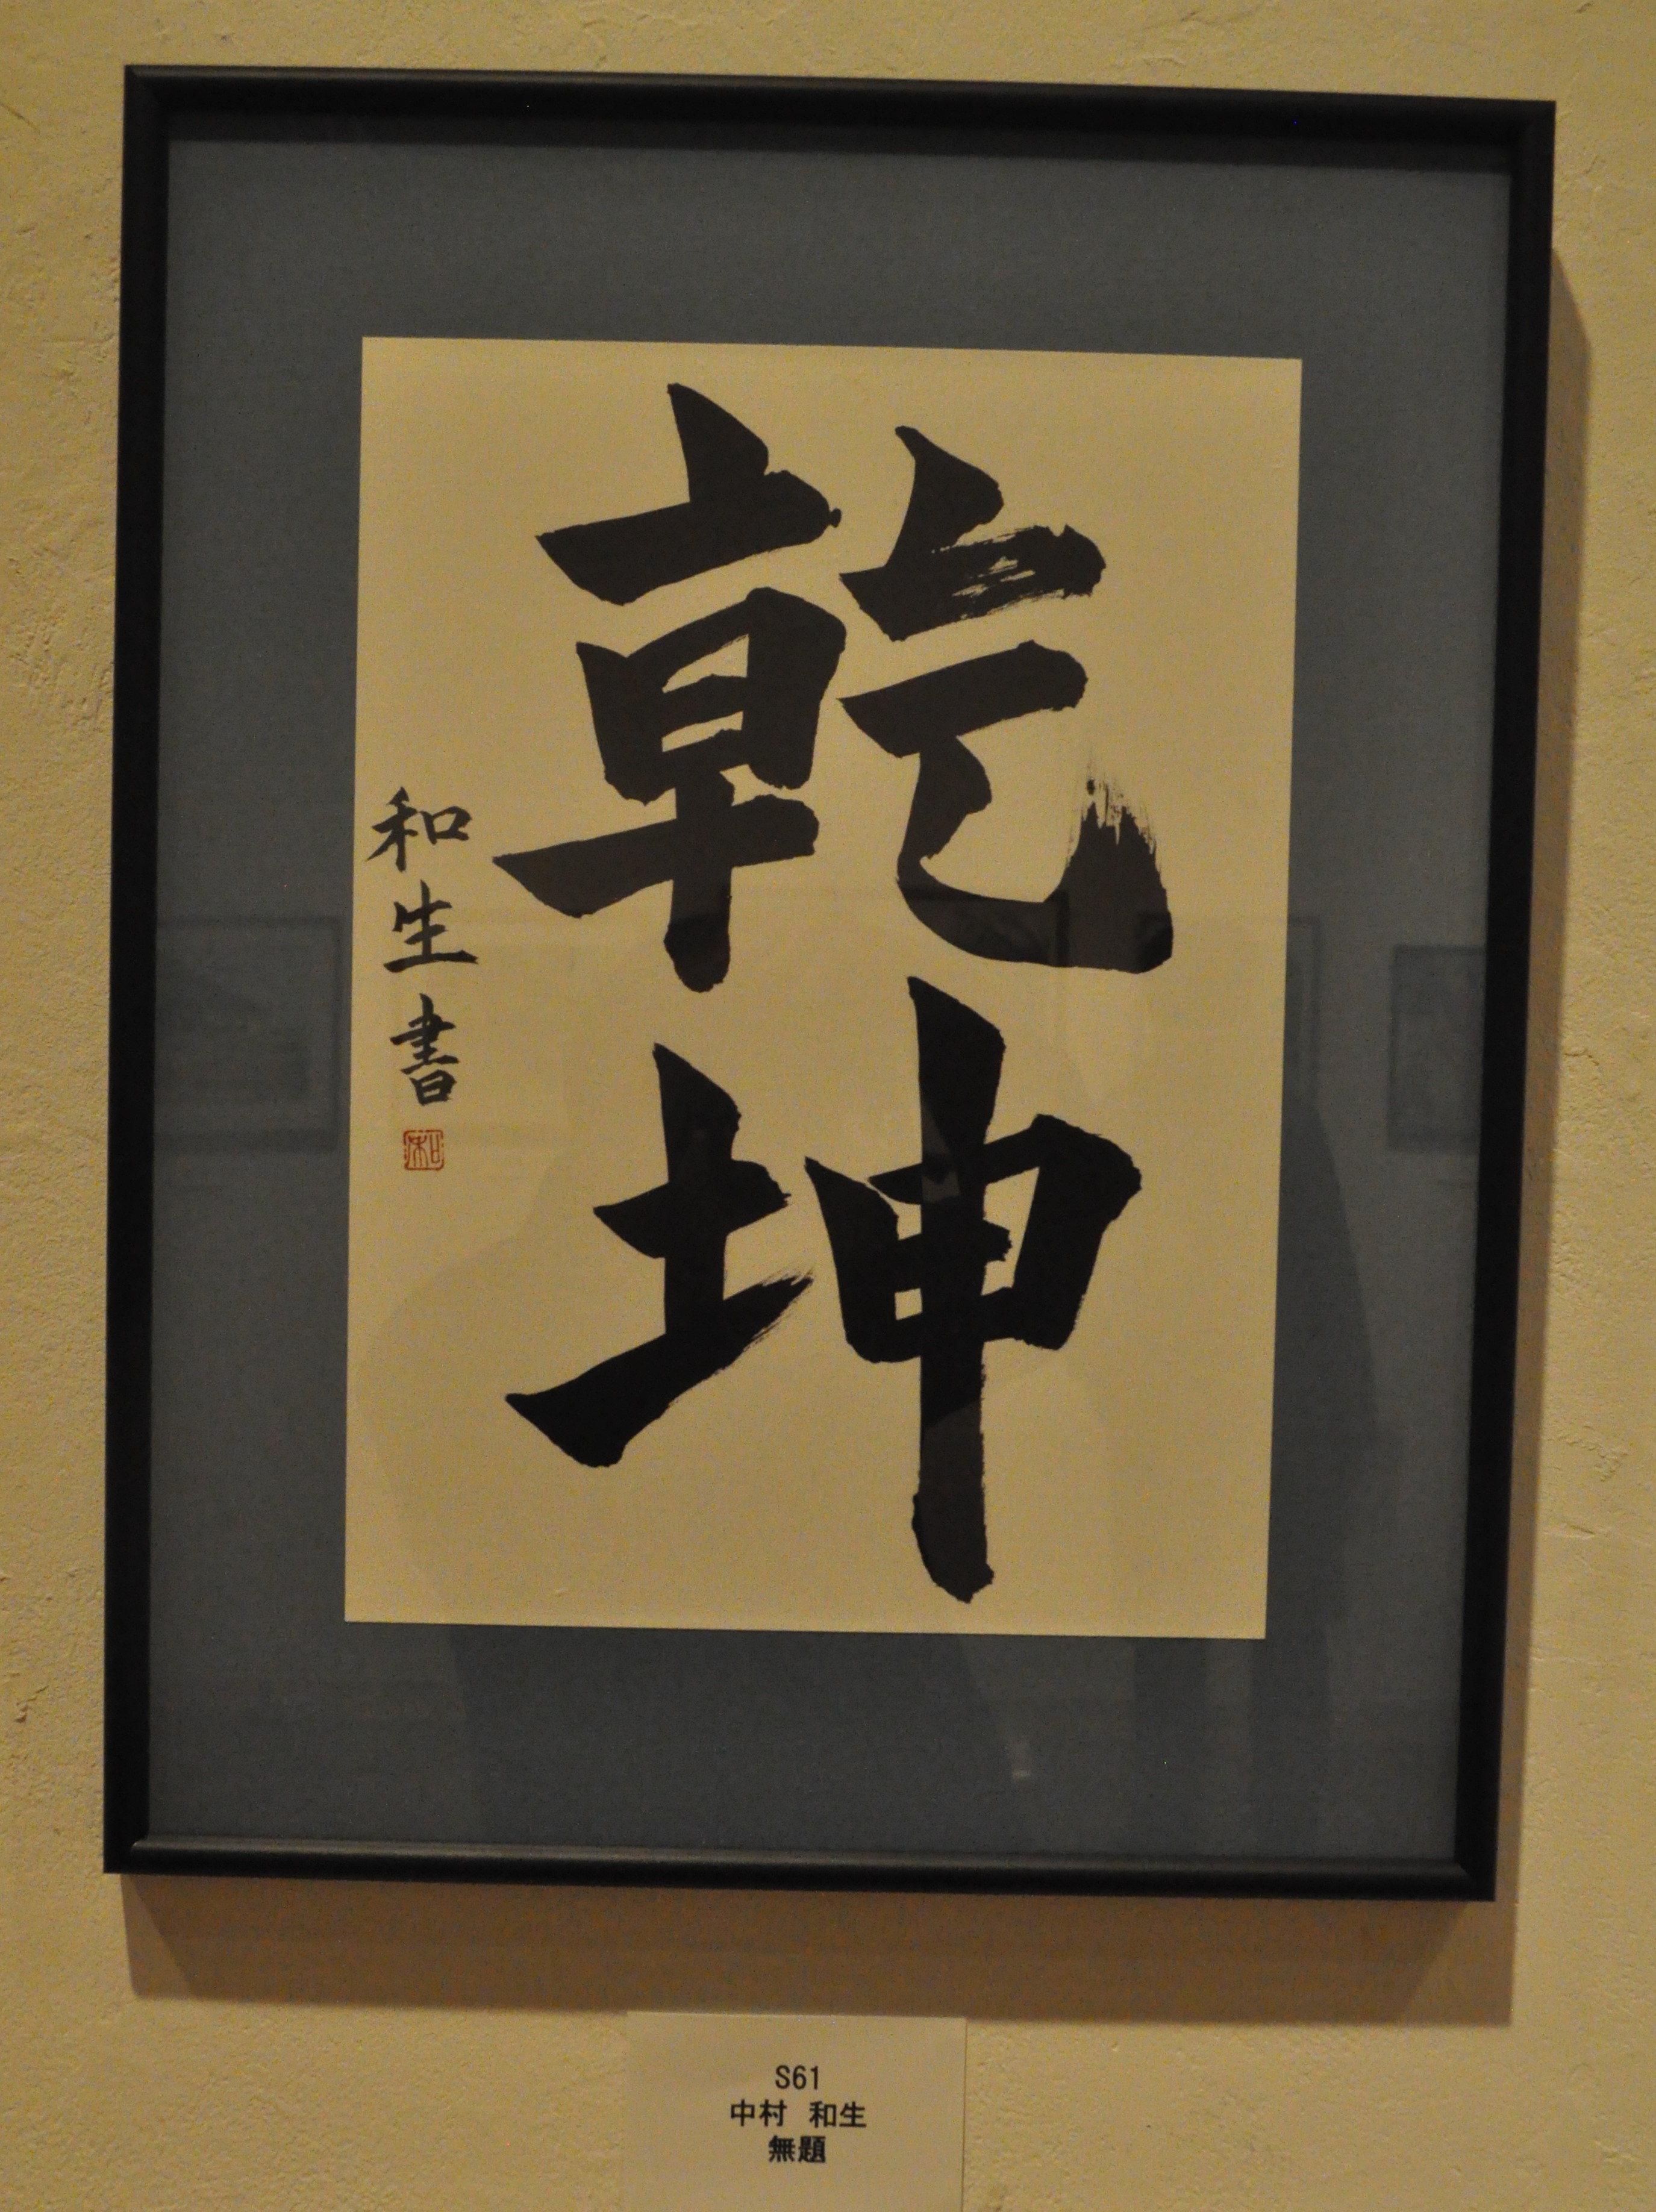 乾坤
和生書
和
S61
中村 和生
無題